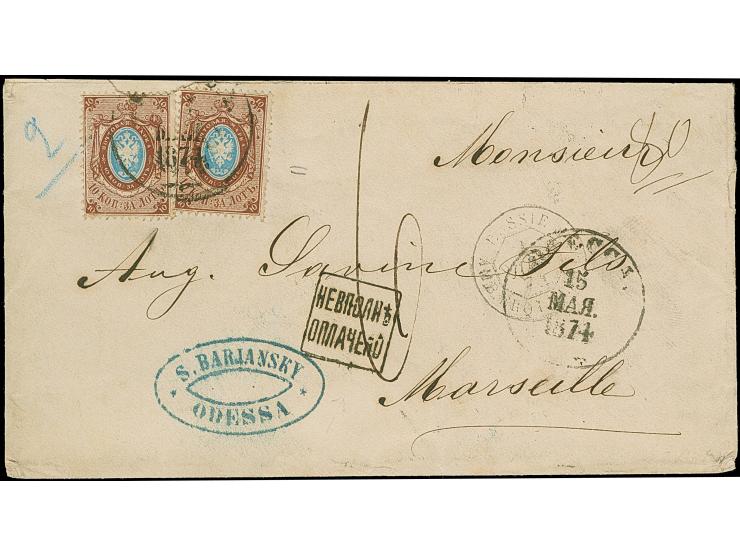 2
10 10 10 10
10 КОП: ЗА ЛОТЪ 10 КОП: ЗА ЛОТЪ
1874
Monsieur
Aug. Savine Fils
ОДЕССА.
15
МАЯ.
1874
НЕВПОЛНѢ
ОПЛАЧЕНО
S. BARJANSKY
ODESSA
Marseille